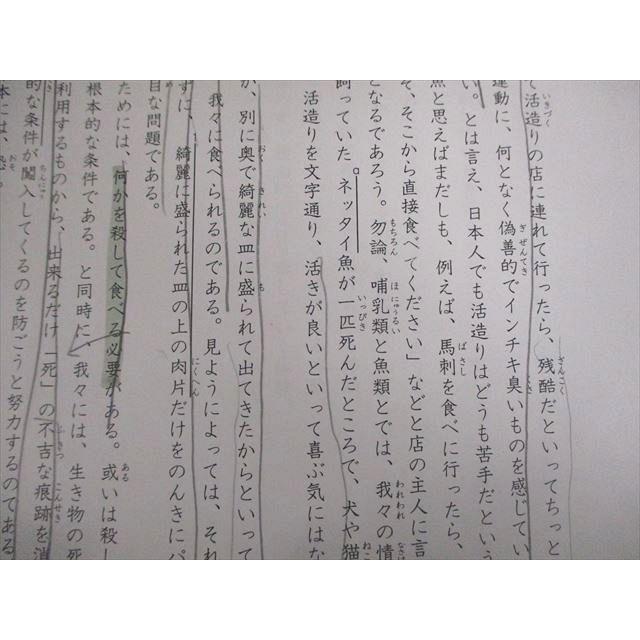 て活造りの店に連れて行ったら、残酷だといってちっと
運動に、何となく偽善的でインチキ臭いものを感じてい
い。とは言え、日本人でも活造りはどうも苦手だという
魚と思えばまだしも、例えば、馬刺を食べに行ったら、
そ、そこから直接食べてください」などと店の主人に言
となるであろう。勿論、哺乳類と魚類とでは、我々の情
飼っていた。ネッタイ魚が一匹死んだところで、犬や猫
活造りを文字通り、活きが良いといって喜ぶ気にはな
が、別に奥で綺麗な皿に盛られて出てきたからといって
我々に食べられるのである。見ようによっては、それ
ずに、綺麗に盛られた皿の上の肉片だけをのんきにパ
自な問題である。
ためには、何かを殺して食べる必要がある。或いは殺し
根本的な条件である。と同時に、我々には、生き物の死
利用するものから、出来るだけ「死」の不吉な痕跡を消
的な条件が闖入してくるのを防ごうと努力するのである